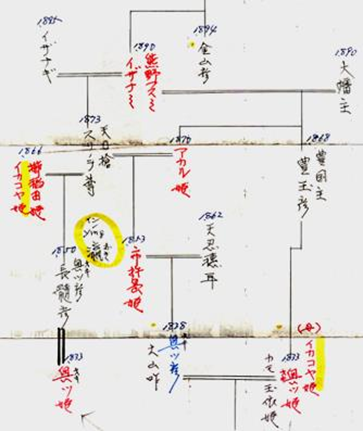 1894
金山彦
1895
イザナギ
1890
熊野フスミ
イザナミ
1890
大幡主
1873
スサノヲ尊
天日槍
1870
アカル姫
1868
豊国主
豊玉彦
1866
櫛稲田姫
イカコヤ姫
1862
天忍穂耳
1863
市杵島姫
1850
奥ツ彦
長髄彦
1838
奥ツ彦
大山咋
1833
奥ツ姫
1833
奥ツ姫
イカコヤ姫
カモ玉依姫